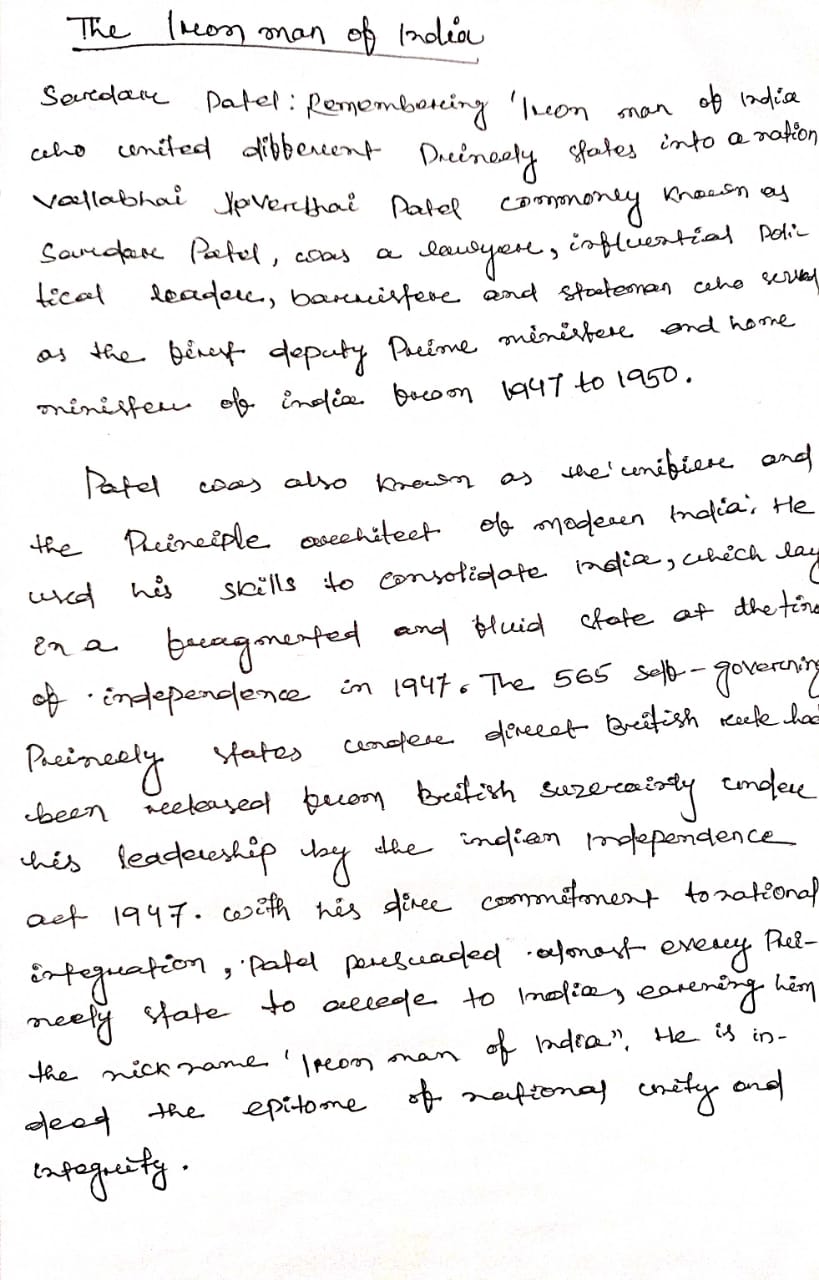 The Iron man of India
Sardar Patel: Remembering 'Iron man of India
who united different Princely states into a nation
Vallabhai Jhaverbhai Patel commonly known as
Sardar Patel, was a lawyer, influential Poli-
tical leader, barrister and stateman who served
as the first deputy Prime minister and home
minister of india from 1947 to 1950.
Patel was also known as the 'unifier and
the Principle architect of modern India'. He
used his skills to consolidate india, which lay
in a fragmented and fluid state at the time
of independence in 1947. The 565 self-governing
Princely states under direct British rule had
been released from British suzerainty under
his leadership by the indian Independence
act 1947. with his dire commitment to national
integration, Patel persuaded almost every Prin-
cely state to accede to India, earning him
the nick name 'Iron man of India". He is in-
deed the epitome of national unity and
integrity.